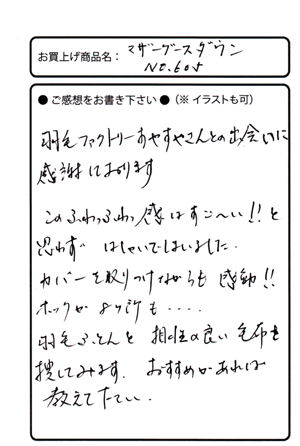 お買上げ商品名：マザーグースダウン
NO.605
●ご感想をお書き下さい●（※イラストも可）
羽毛ファクトリーおやすやさんとの出会いに
感謝しております
このふわっふわっ感はすご〜い!!と
思わず はしゃいでしまいました.
カバーを取りつけながらも 感動!!
ホックが8ヶ所も・・・・
羽毛ふとんと 相性の良い毛布も
捜してみます. おすすめがあれば
教えて下さい.